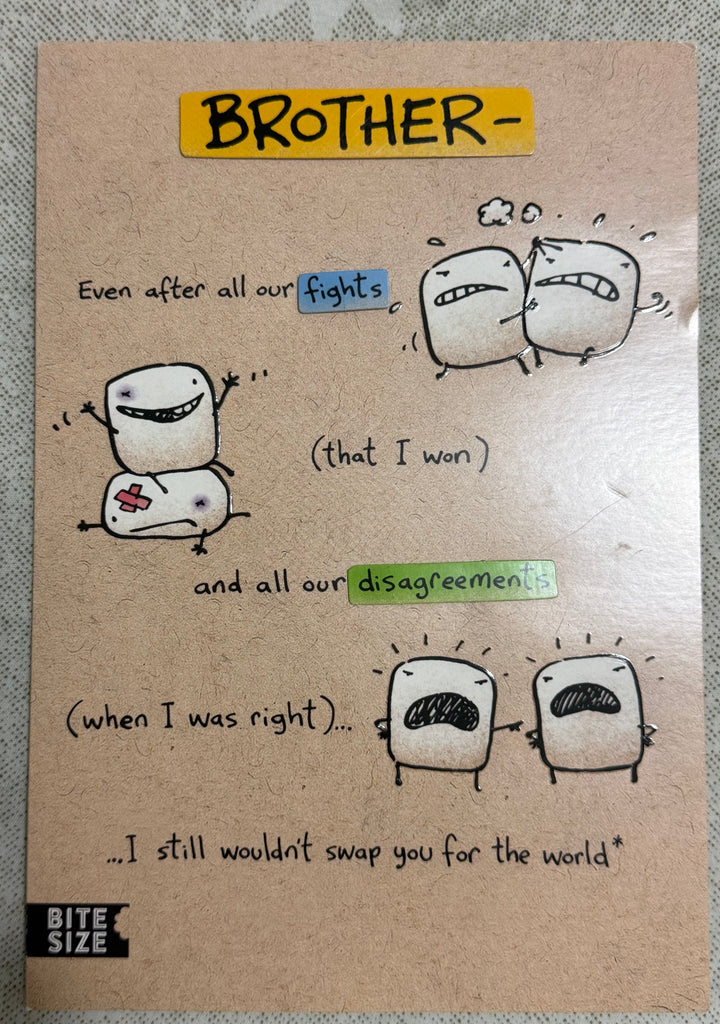 BROTHER-
Even after all our fights
(that I won)
and all our disagreements
(when I was right)...
...I still wouldn't swap you for the world*
BITE
SIZE